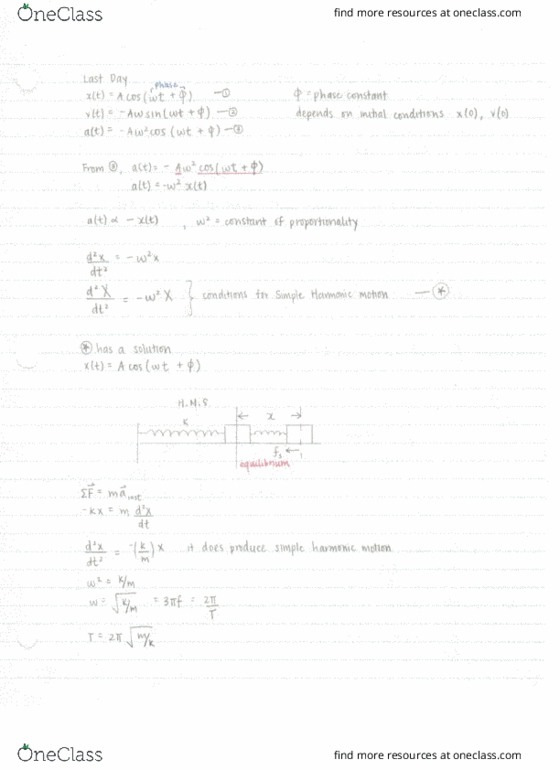 OneClass find more resources at oneclass.com
Last Day
phase
x(t) = A cos(ωt + ϕ) —① ϕ = phase constant
v(t) = -Aω sin(ωt + ϕ) —② depends on initial conditions x(0), v(0)
a(t) = -Aω² cos (ωt + ϕ) —③
From ③, a(t) = - Aω² cos(ωt + ϕ)
a(t) = -ω² x(t)
a(t) ∝ - x(t) , ω² = constant of proportionality
d²x/dt² = -ω²x
d²X/dt² = -ω² X } conditions for Simple Harmonic motion —⊛
⊛ has a solution
x(t) = A cos(ωt + ϕ)
H.M.S.
K x
fs
equilibrium
ΣF = ma
-kx = m d²x/dt
d²x/dt² = -(k/m)x it does produce simple harmonic motion
ω² = k/m
ω = √k/m = 3πf = 2π/T
T = 2π √m/k
OneClass find more resources at oneclass.com